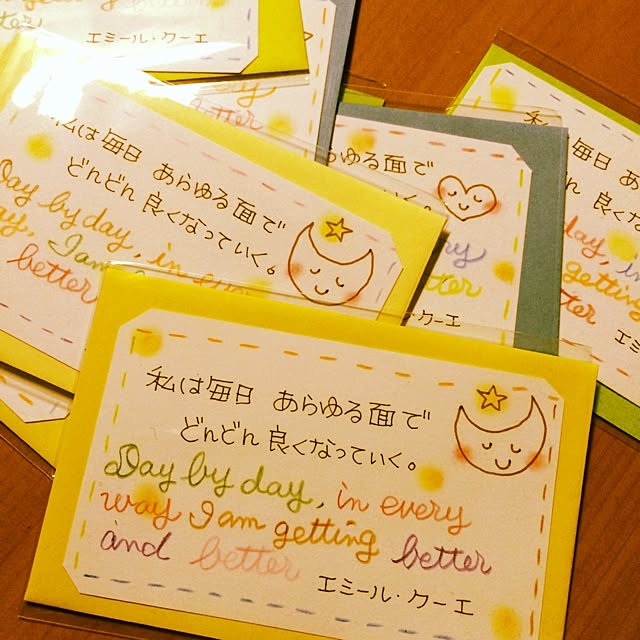 better
エミール・クーエ
better
私は毎日 あらゆる面で
どんどん 良くなっていく。
Day by day, in
way, I am
better
らゆる面で
better
クーエ
私は毎日 あ
どんどん 良くな
day, in
getting
エミール
私は毎日 あらゆる面で
どんどん 良くなっていく。
Day by day, in every
way I am getting better
and better
エミール・クーエ